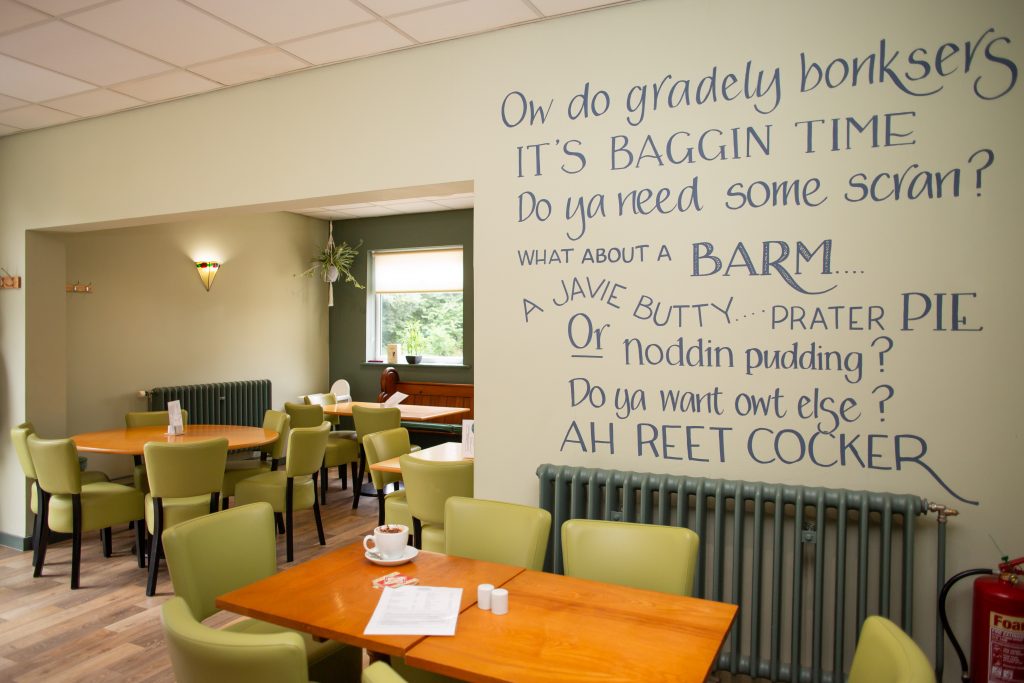 Ow do gradely bonksers
IT'S BAGGIN TIME
Do ya need some scran?
WHAT ABOUT A BARM....
A JAVIE BUTTY.... PRATER PIE
Or noddin pudding?
Do ya want owt else?
AH REET COCKER
Foam